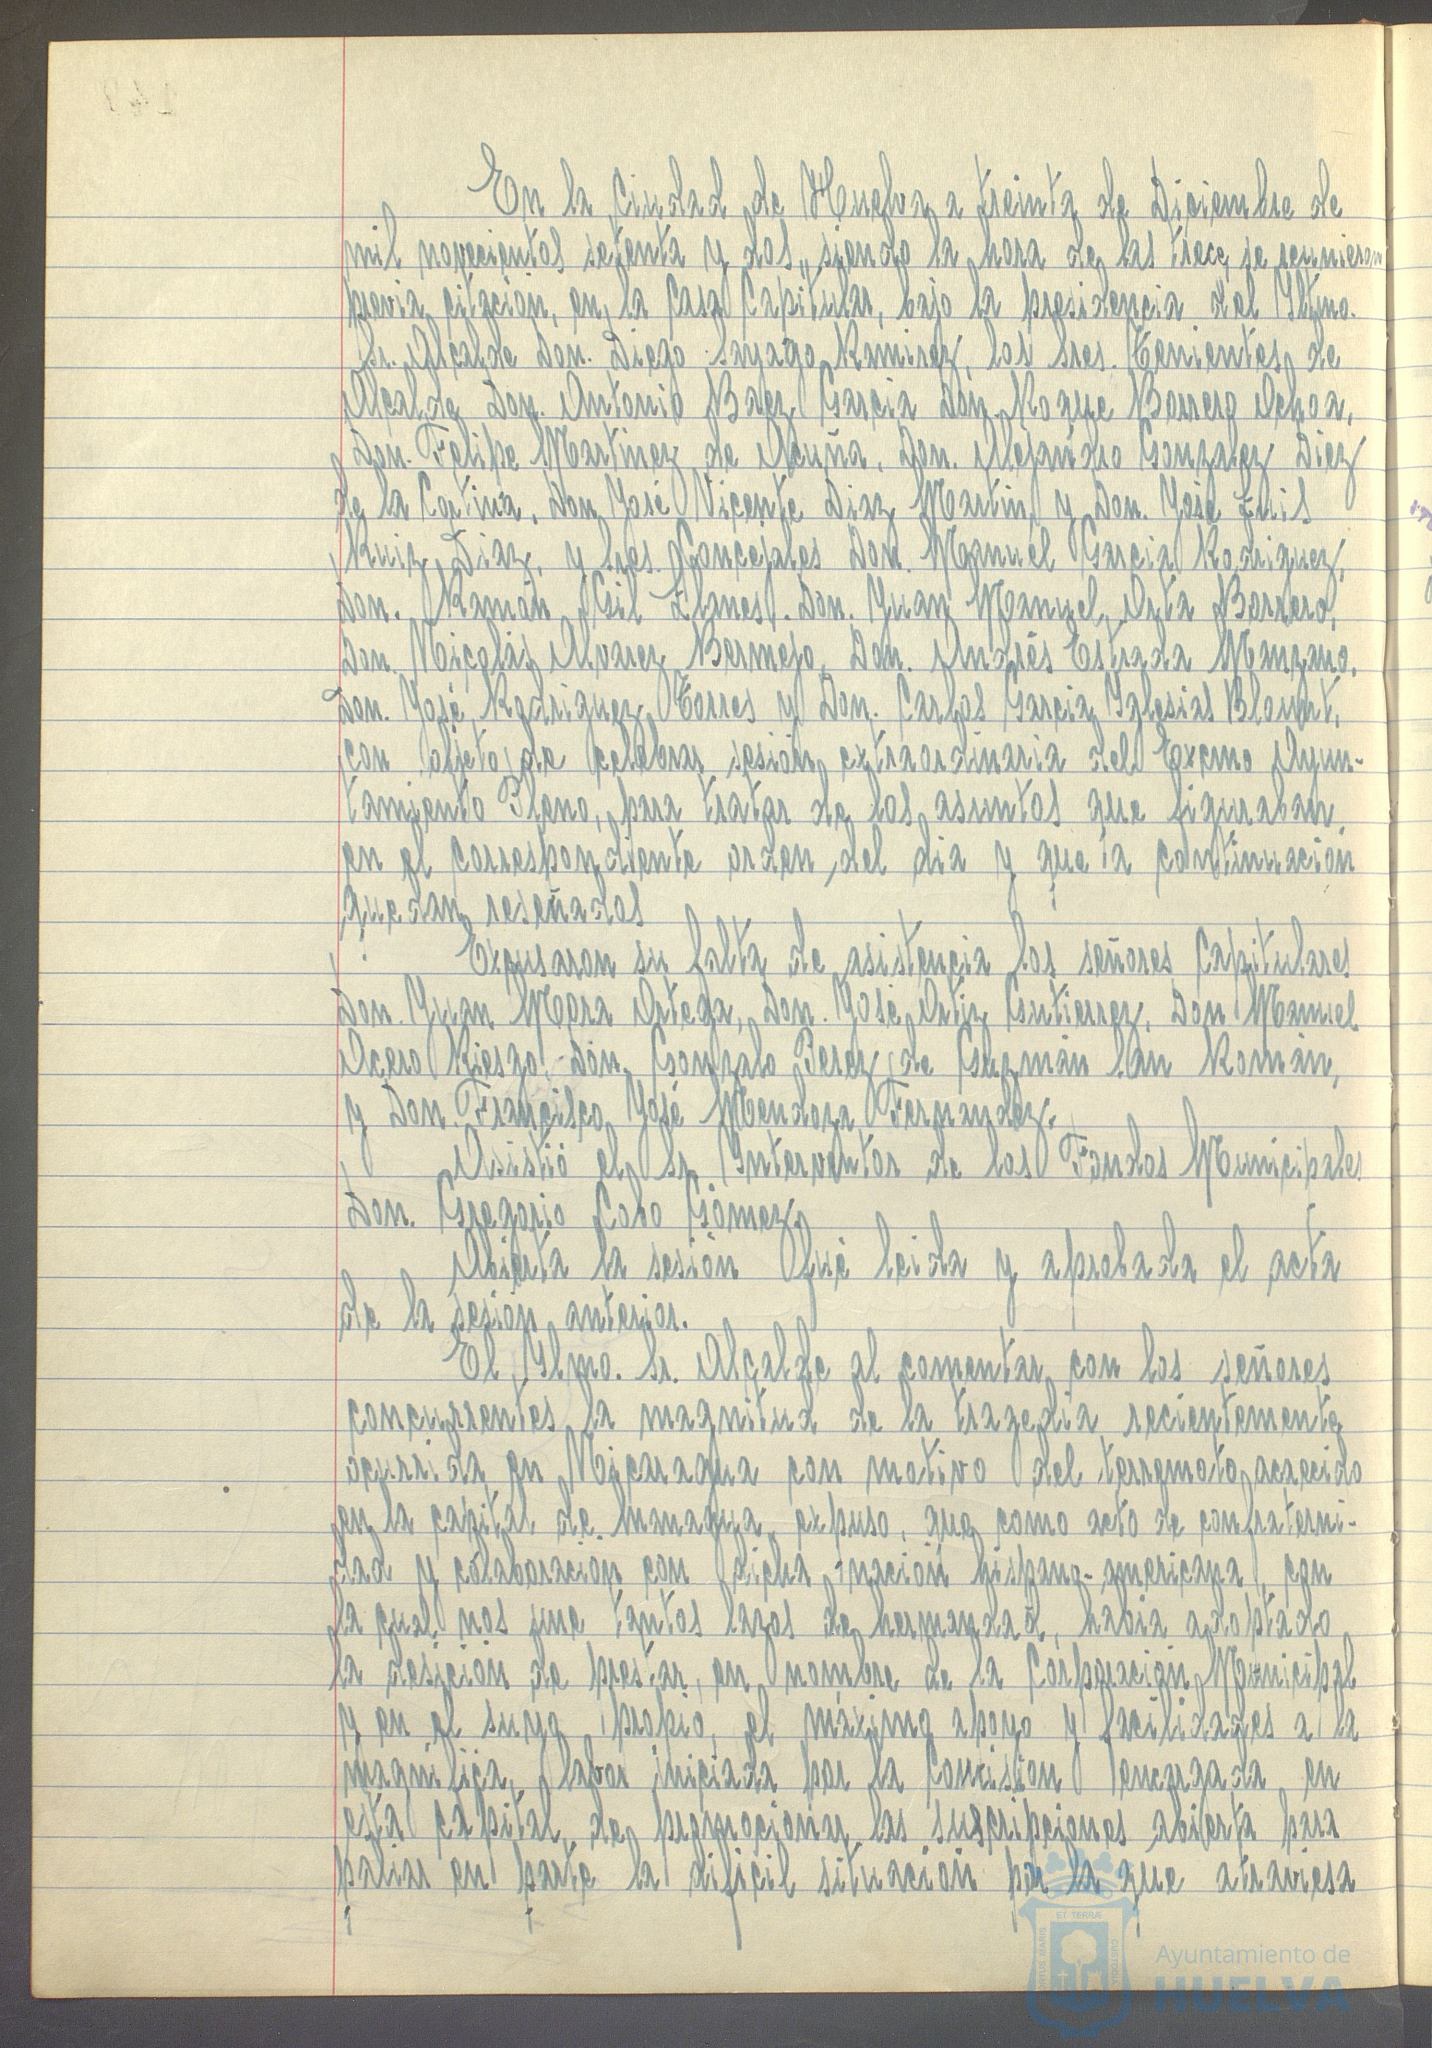 En la Ciudad de Huelva a treinta de Diciembre de
mil novecientos setenta y dos, siendo la hora de las trece, se reunieron
previa citación, en la Casa Capitular, bajo la presidencia del Yltmo.
Sr. Alcalde Don. Diego Sayago Ramirez, los Sres. Tenientes de
Alcalde Don. Antonio Baez Garcia Don. Roque Borrero Ochoa,
Don. Felipe Martinez de Acuña, Don. Alejandro Gonzalez Diez
de la Cortina, Don José Vicente Diaz Martin y Don. José Luis
Ruiz Diaz, y Sres. Concejales Don. Manuel Garcia Rodriguez,
Don. Ramón Gil Llanes, Don. Juan Manuel Orta Borrero,
Don. Nicolás Alvarez Bermejo, Don. Andrés Estrada Manzano,
Don. José Rodriguez Torres y Don. Carlos Garcia Yglesias Blount,
con objeto de celebrar sesión extraordinaria del Excmo Ayun-
tamiento Pleno, para tratar de los asuntos que figuraban
en el correspondiente orden del dia y que a continuación
quedan reseñados
Excusaron su falta de asistencia los señores Capitulares
Don. Juan Mora Ortega, Don. José Ortiz Gutierrez, Don Manuel
Acero Riesgo, Don. Gonzalo Perez de Guzmán San Román,
y Don. Francisco José Mendoza Fernandez.
Asistió el Sr. Ynterventor de los Fondos Municipales
Don. Gregorio Cobo Gómez.
Abierta la sesión fué leida y aprobada el acta
de la sesión anterior.
El Ylmo. Sr. Alcalde al comentar con los señores
concurrentes la magnitud de la tragedia recientemente
ocurrida en Nicaragua con motivo del terremoto acaecido
en la capital de Managua, expuso, que como acto de confraterni-
dad y colaboración con dicha nación hispano-americana, con
la cual nos une tantos lazos de hermandad, habia adoptado
la desición de prestar, en nombre de la Corporación Municipal
y en el suyo propio, el máximo apoyo y facilidades a la
magnifica labor iniciada por la Comision encargada en
esta capital, de promocionar las suscripciones abierta para
paliar en parte la dificil situación por la que atraviesa
Ayuntamiento de
HUELVA